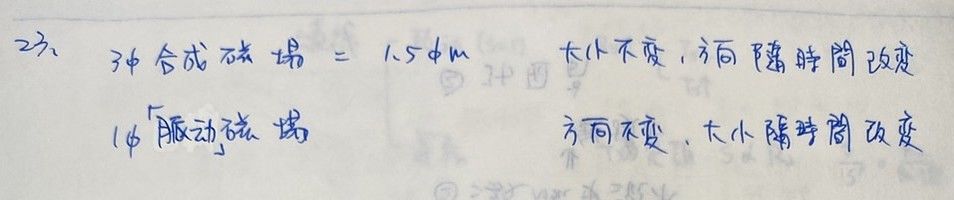 23、 3φ 合成磁場 = 1.5 φm 大小不变，方向隨時間改变
1φ「脈动」磁場 方向不变，大小隨時間改变